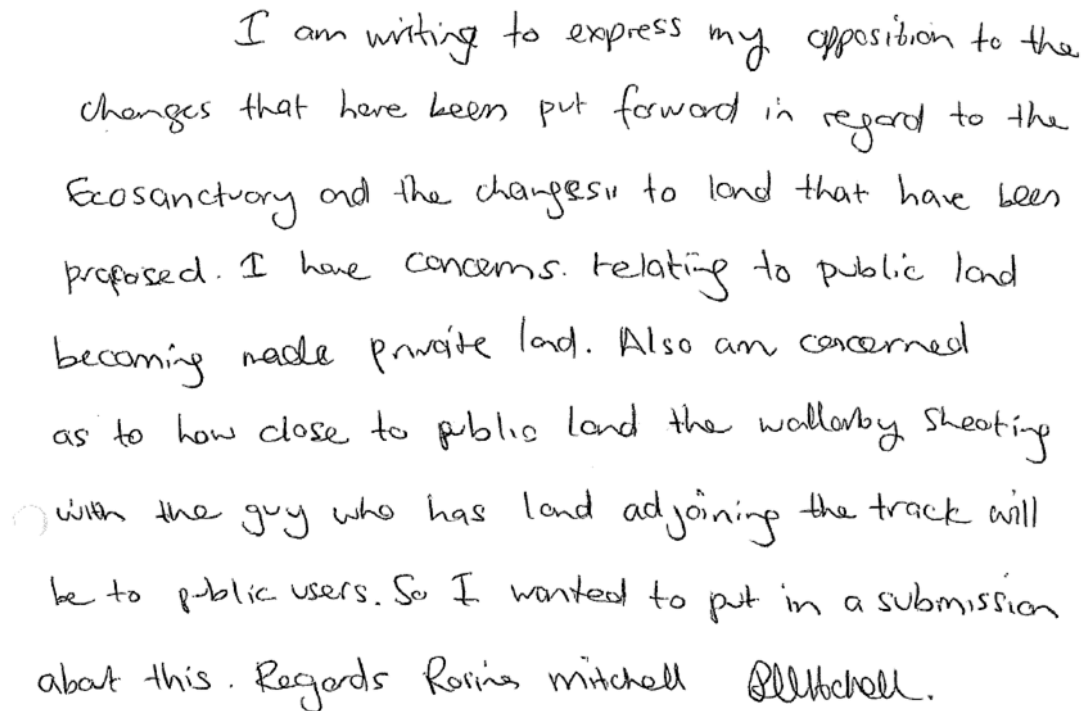 I am writing to express my opposition to the
changes that have been put forward in regard to the
Ecosanctuary and the changes to land that have been
proposed. I have concerns. relating to public land
becoming made private land. Also am concerned
as to how close to public land the wallarby sheoting
with the guy who has land adjoining the track will
be to public users. So I wanted to put in a submission
about this. Regards mitchell